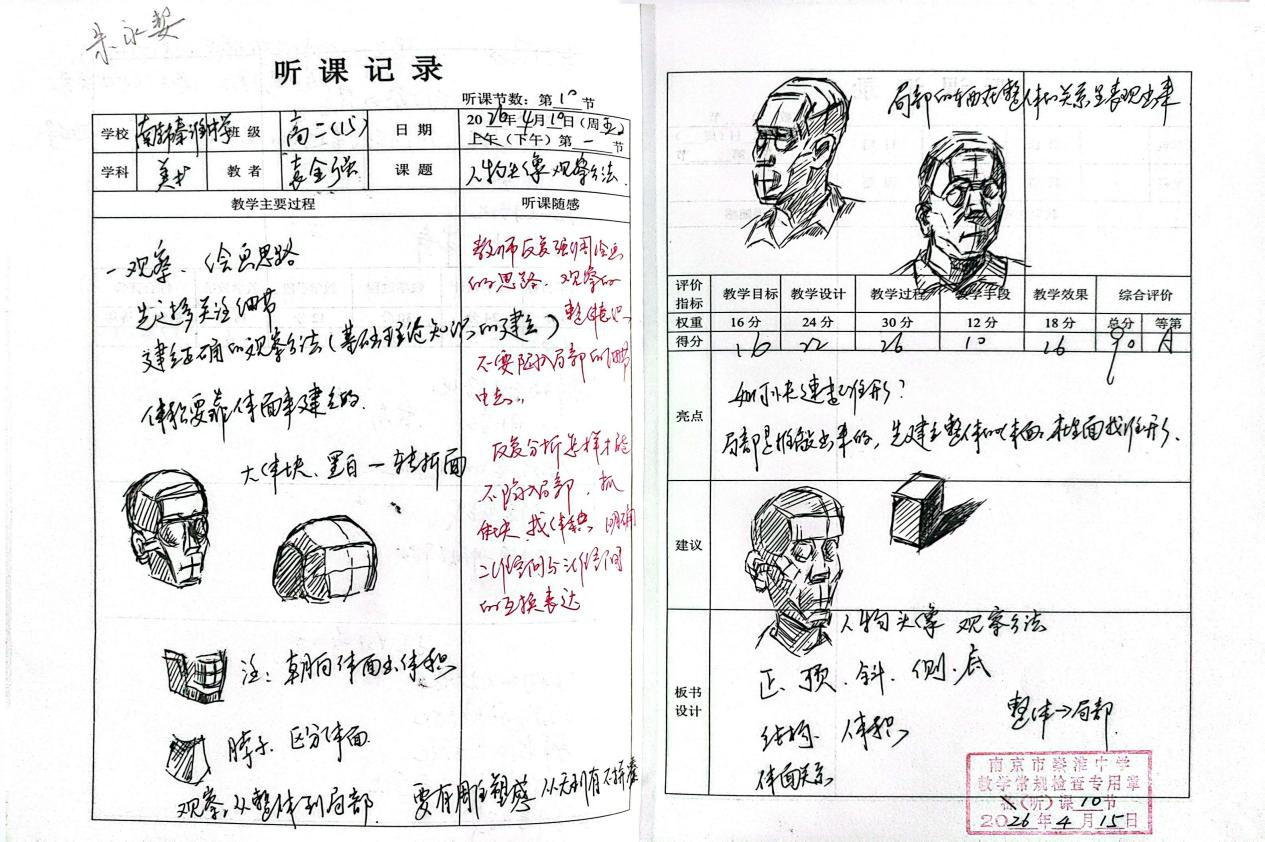 听课记录
听课节数：第10节
学校 南京秦淮中学 班级 高二(15) 日期 2026年4月10日(周五)
上午(下午)第一节
学科 美术 教者 袁金强 课题 人物头像观察方法
教学主要过程 听课随感
一 观察、绘画思路
关注细节
建立正确的观察方法(基础理论知识的建立)
体积要靠体面来建立的.
大体块、黑白一转折面
注: 朝向体面出体积
脖子、区分体面
观察,从整体到局部
要有雕塑感
教师反复强调绘画
的思路、观察的
整体意识
不要陷入局部的细节
中去..
反复分析怎样才能
不陷入局部、抓
体块、找体积、明确
二维空间与三维空间
的互换表达
局部的东西在整体的关系里表现出来
评价指标 教学目标 教学设计 教学过程 教学手段 教学效果 综合评价
权重 16分 24分 30分 12分 18分 总分 等第
得分 16 22 26 10 16 90 A
亮点
如何快速抓准形?
局部是推敲出来的, 先建立整体的体面, 在里面找准形、
建议
板书设计
人物头像 观察方法
正、顶、斜、侧、底
整体→局部
结构、体积
体面关系
南京市秦淮中学
教学常规检查专用章
(听)课10节
2026年4月15日